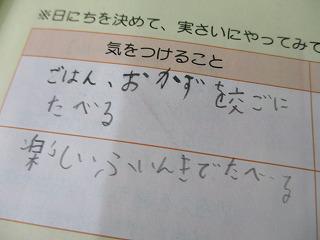 ※日にちを決めて、実さいにやってみて
気をつけること
ごはん、おかずを交ごに
たべる
楽しいふいんきでたべる